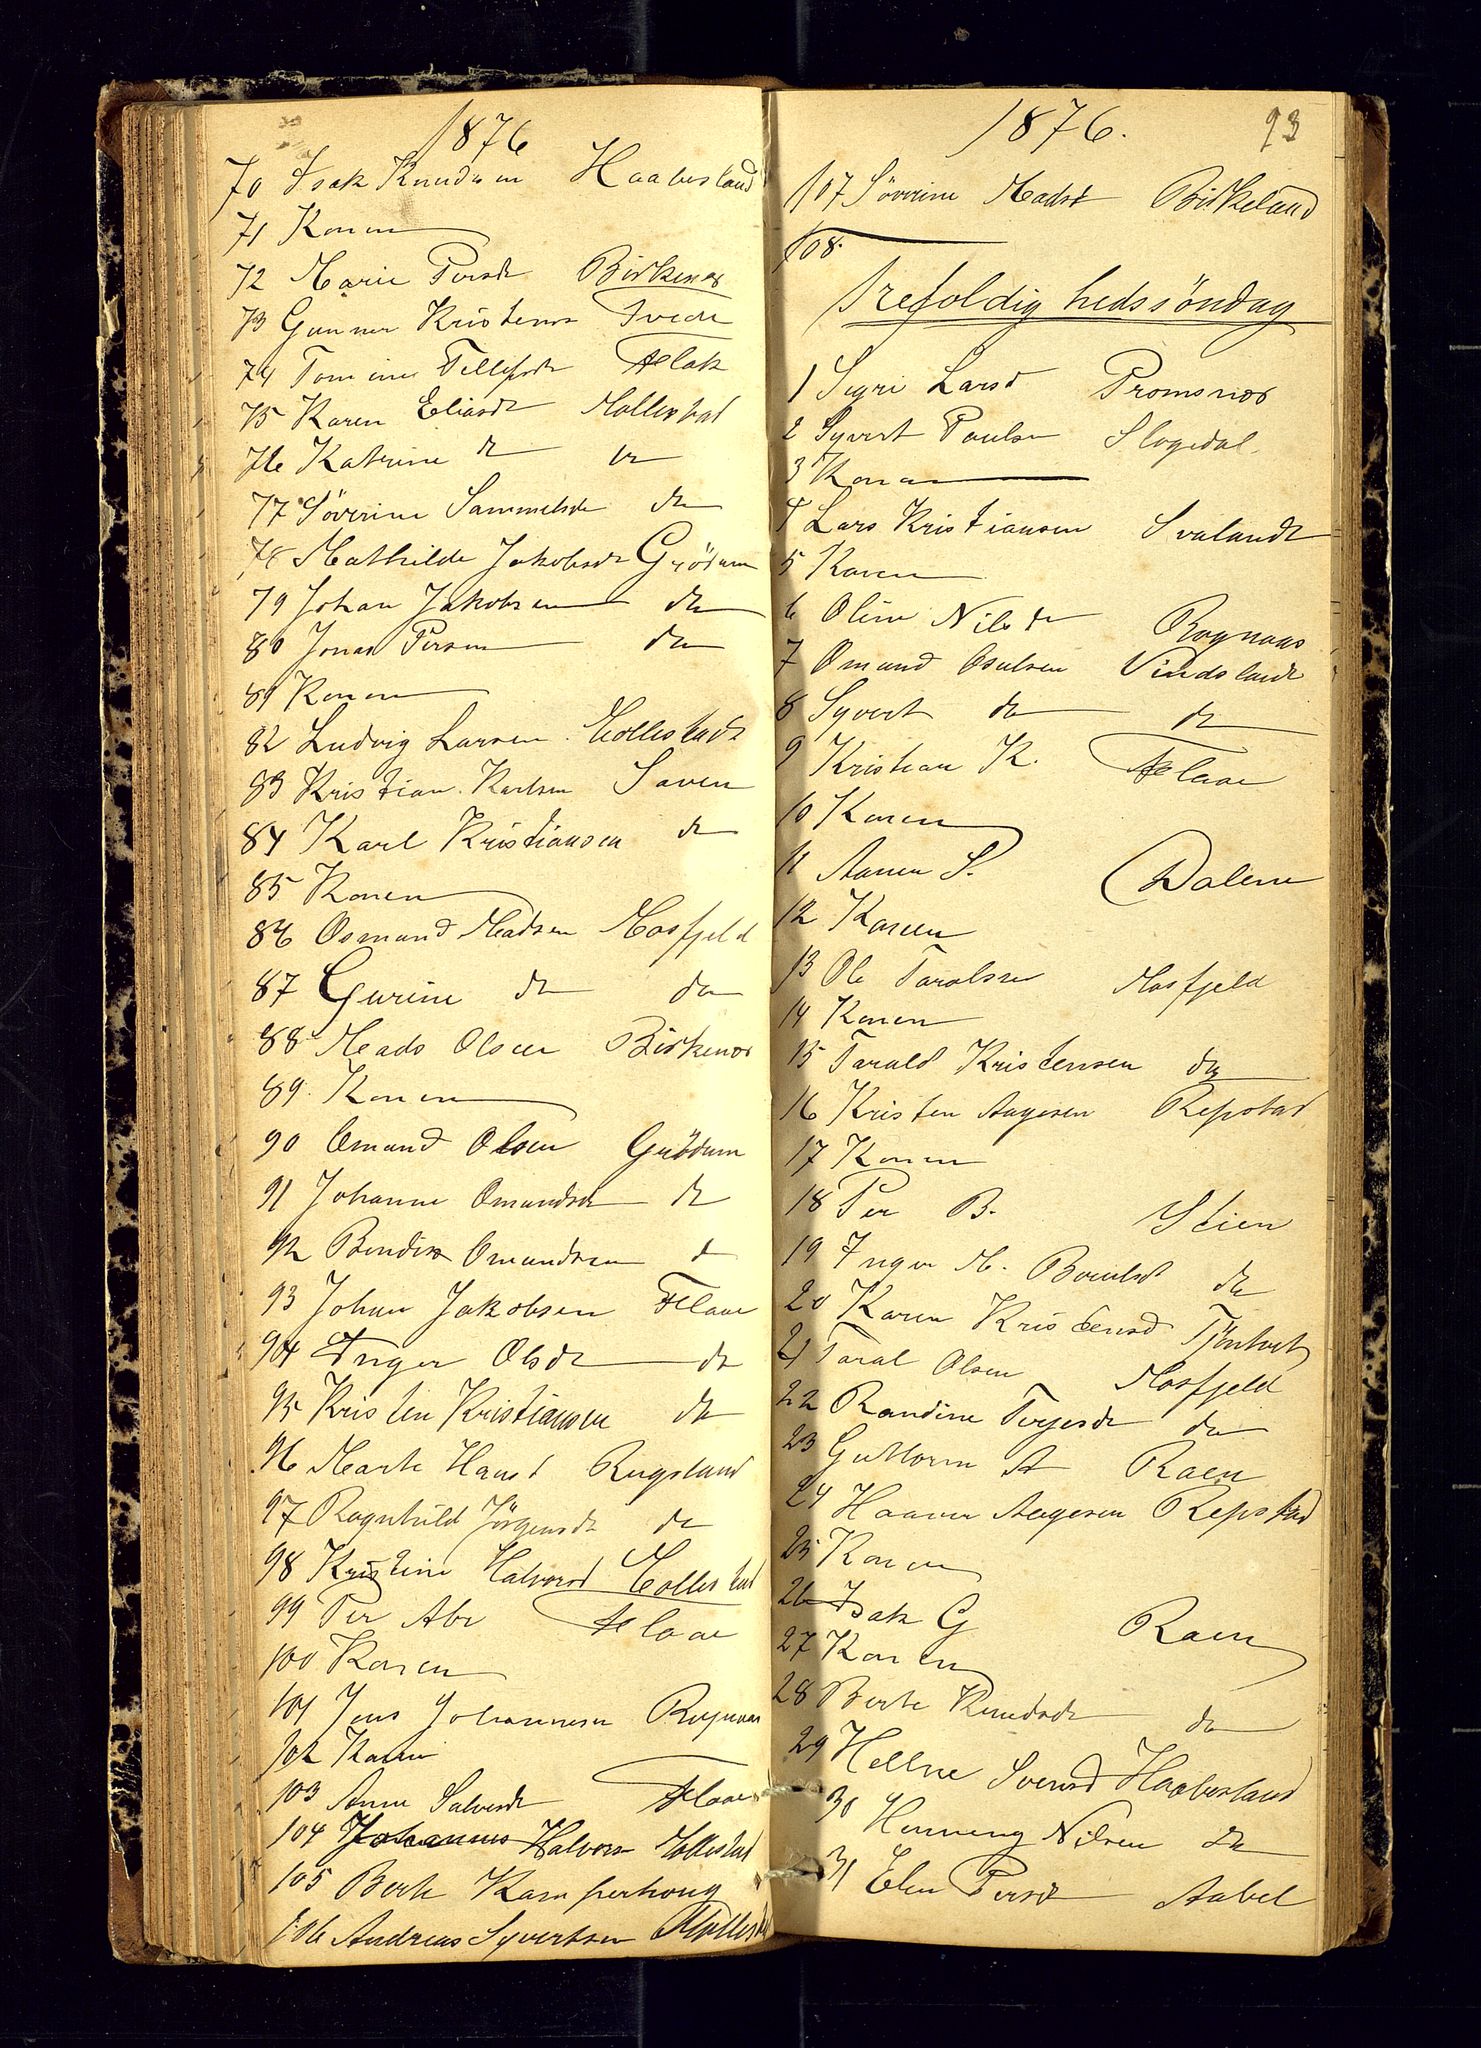 1876
70 Isak Knudsen Haabesland
71 Konen
72 Marie Persdt Birkenes
73 Gunner Kristens Tvede
74 Tomine Tellefsdt Flak
75 Karen Eliasdt Mollestad
76 Katrine dt do
77 Söverine Sammelsdt do
78 Mathilde Jakobsdt Grödum
79 Johan Jakobsen do
80 Jonas Persen do
81 Konen
82 Ludvig Larsen Mollestad
83 Kristian Karlsen Saven
84 Karl Kristiansen do
85 Konen
86 Osmund Madsen Mosfjeld
87 Gurine do do
88 Mads Olsen Birkenes
89. Konen
90 Omund Olsen Grödum
91 Johanne Omundsdt do
92 Bendix Omundsen do
93 Johan Jakobsen Flaae
94 Inger Olsdt do
95 Kristen Kristiansen do
96 Marte Hansd Rugsland
97 Ragnhild Jörgensdt do
98 Kristine Halvorsd Mollestad
99 Per Abr Flaae
100 Konen
101 Jens Johannesen Rognaas
102 Konen
103 Anne Salvesdt Flaae
104 Johannes Halvors Mollestad
105 Berte Kamperhoug
106 Andreas Syvertsen Mollestad
1876. 93
107 Söverine Madsd Birkeland
108.
Trefoldighedssöndag
1 Sigri Larsd Tromsnes
2 Syvert Paulsen Slogedal
3 Konen
4 Lars Kristiansen Svalandt
5 Konen
6 Oline Nilsdt Rognaas
7 Omund Osulsen Vindslandt
8 Syvert do do
9 Kristian K. Flaae
10 Konen
11 Aanen S. Dalene
12 Konen
13 Ole Taralsen Mosfjeld
14 Konen
15 Tarald Kristensen do
16 Kristen Aagesen Repstad
17 Konen
18 Per B. Stien
19 Inger M. do
20 Karen Kristensd
21 Taral Olsen Mosfjeld
22 Randine Terjesdt do
23 Guttorm A Raen
24 Haaver Aagesen Repstad
25 Konen
26 Isak G Raen
27 Konen
28 Berte Knudsdt do
29 Hellne Svensd Haabesland
30 Henning Nilsen do
31 Elen Persdt Aabel